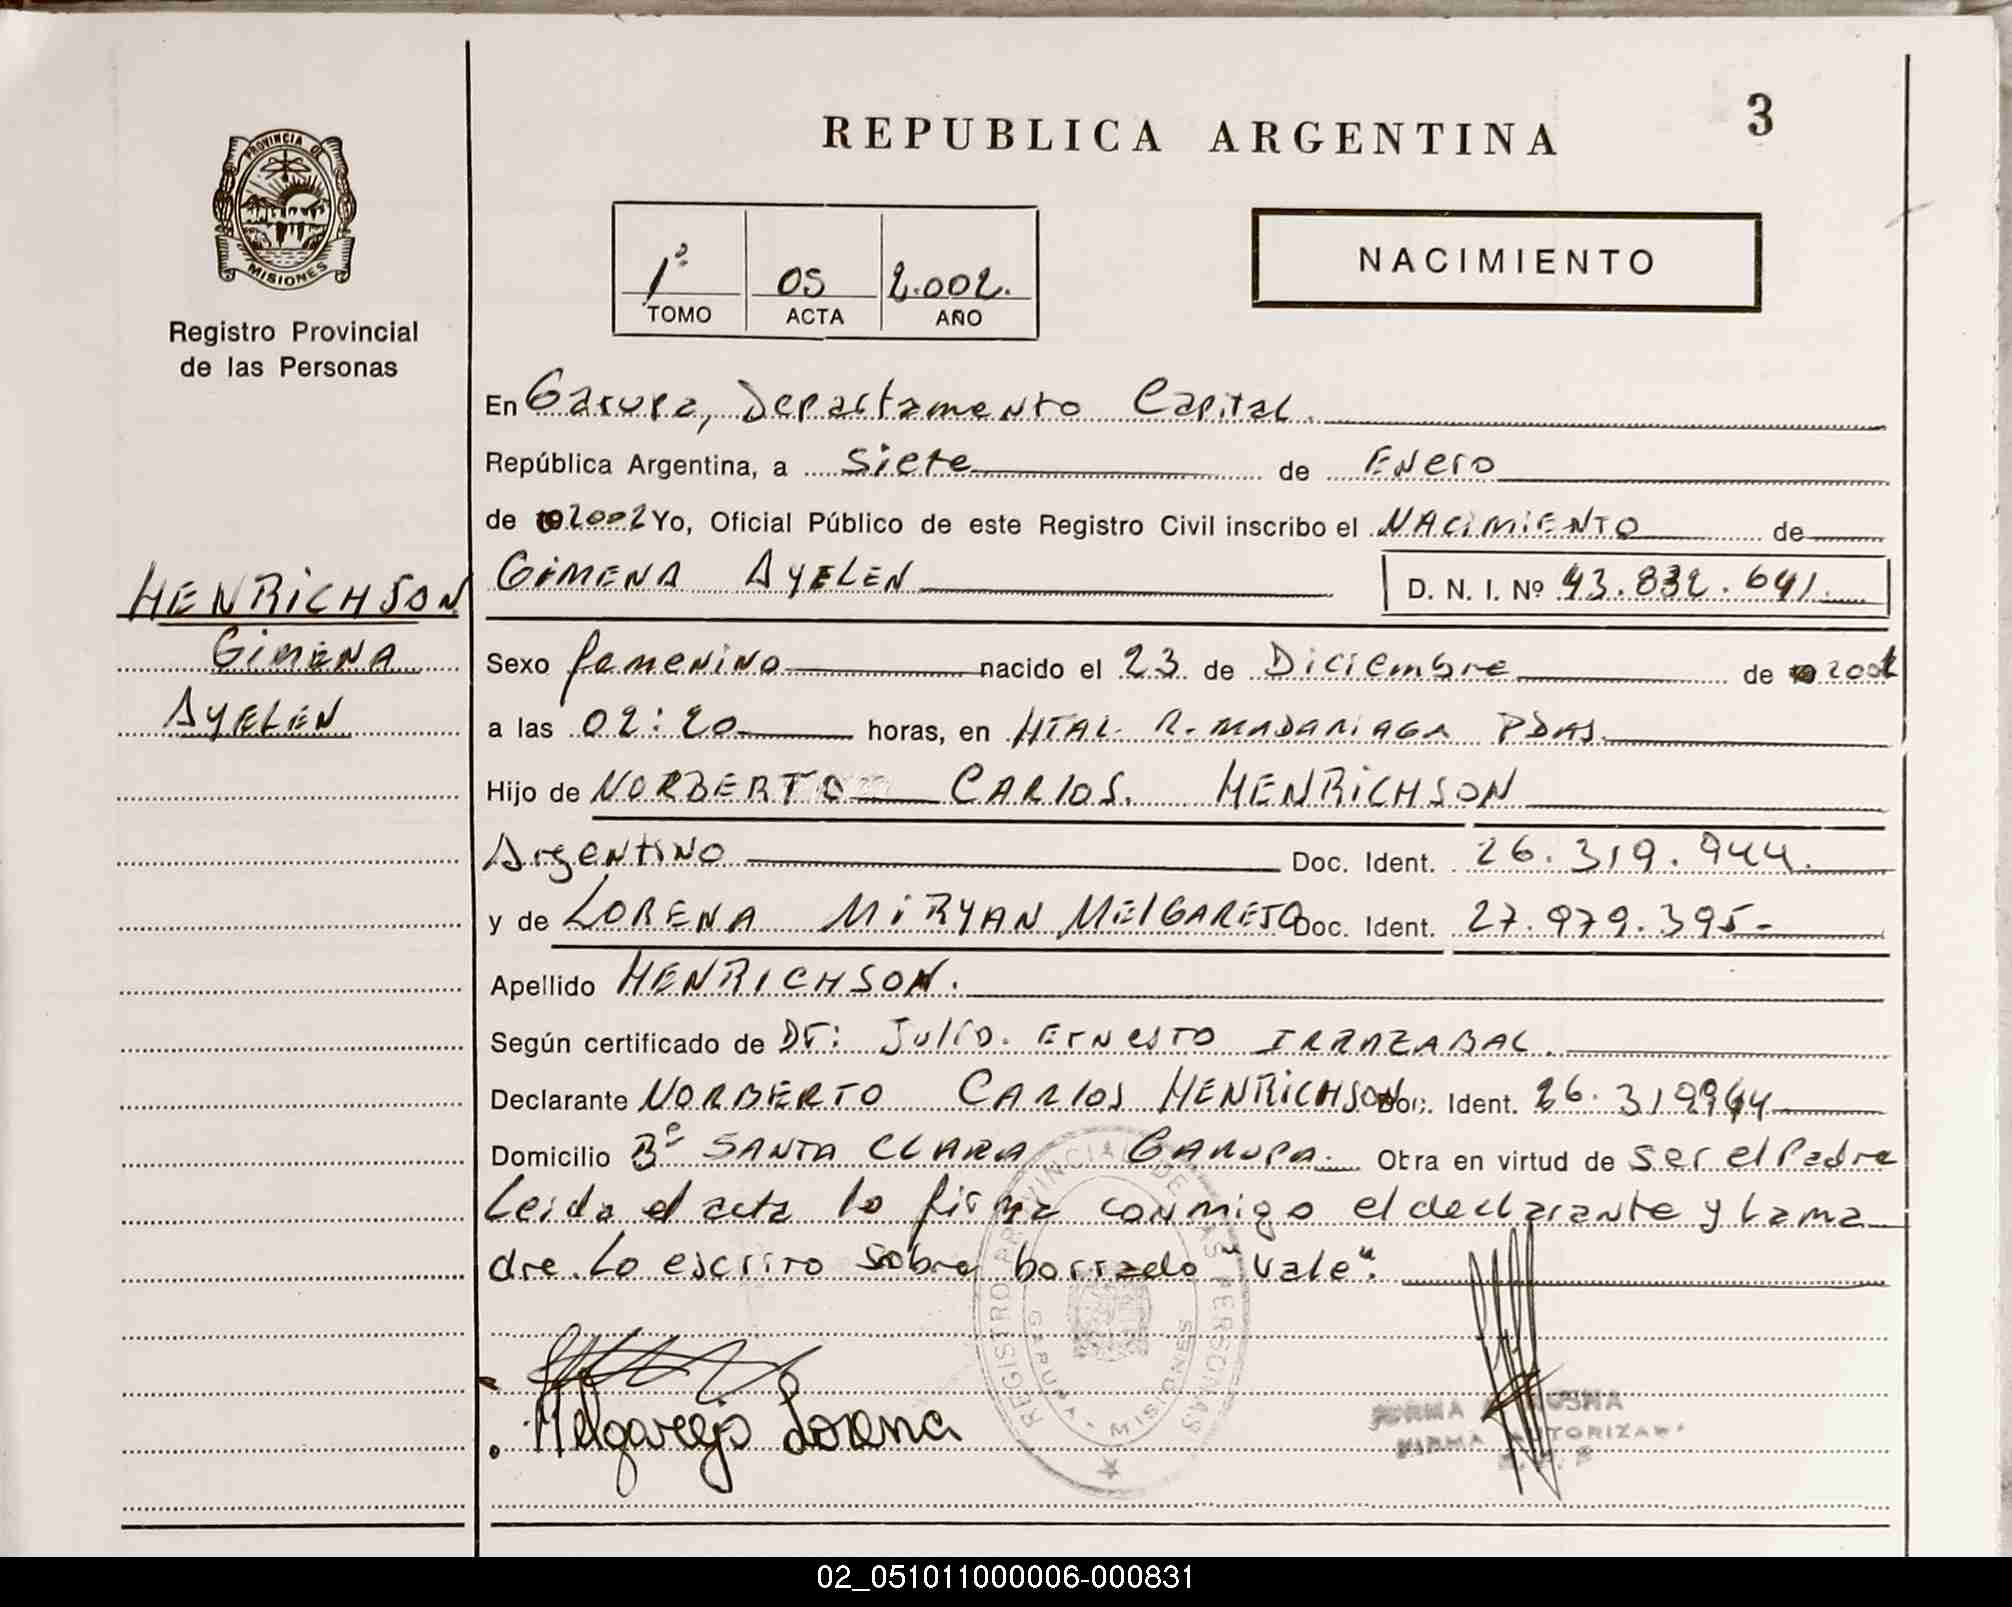 REPUBLICA ARGENTINA
3
PROVINCIA DE
MISIONES
Registro Provincial
de las Personas
1º 05 2.002.
TOMO ACTA AÑO
NACIMIENTO
En Garupa, Departamento Capital.
República Argentina, a Siete de Enero
de 2002 Yo, Oficial Público de este Registro Civil inscribo el NACIMIENTO de
HENRICHSON
GIMENA AYELEN D. N. I. Nº 43.832.641.
GIMENA
Sexo femenino nacido el 23 de Diciembre de
AYELEN
a las 02:20 horas, en HTAL. R. MADARIAGA PDAS.
Hijo de NORBERTO CARLOS. HENRICHSON
Argentino Doc. Ident. 26.319.944.
y de LORENA MIRYAN MELGAREJO Doc. Ident. 27.979.395-
Apellido HENRICHSON.
Según certificado de Dr: Julio. Ernesto IRRAZABAL.
Declarante NORBERTO CARLOS HENRICHSON Doc. Ident. 26.319944
Domicilio Bº SANTA CLARA GARUPA. Obra en virtud de ser el Padre
Leida el acta la firma conmigo el declarante y la ma
dre. Lo escrito sobre borrado "vale".
REGISTRO PROVINCIAL DE LAS PERSONAS
GARUPA - MISIONES
Melgarejo Lorena
FIRMA AUTORIZAD
02_051011000006-000831